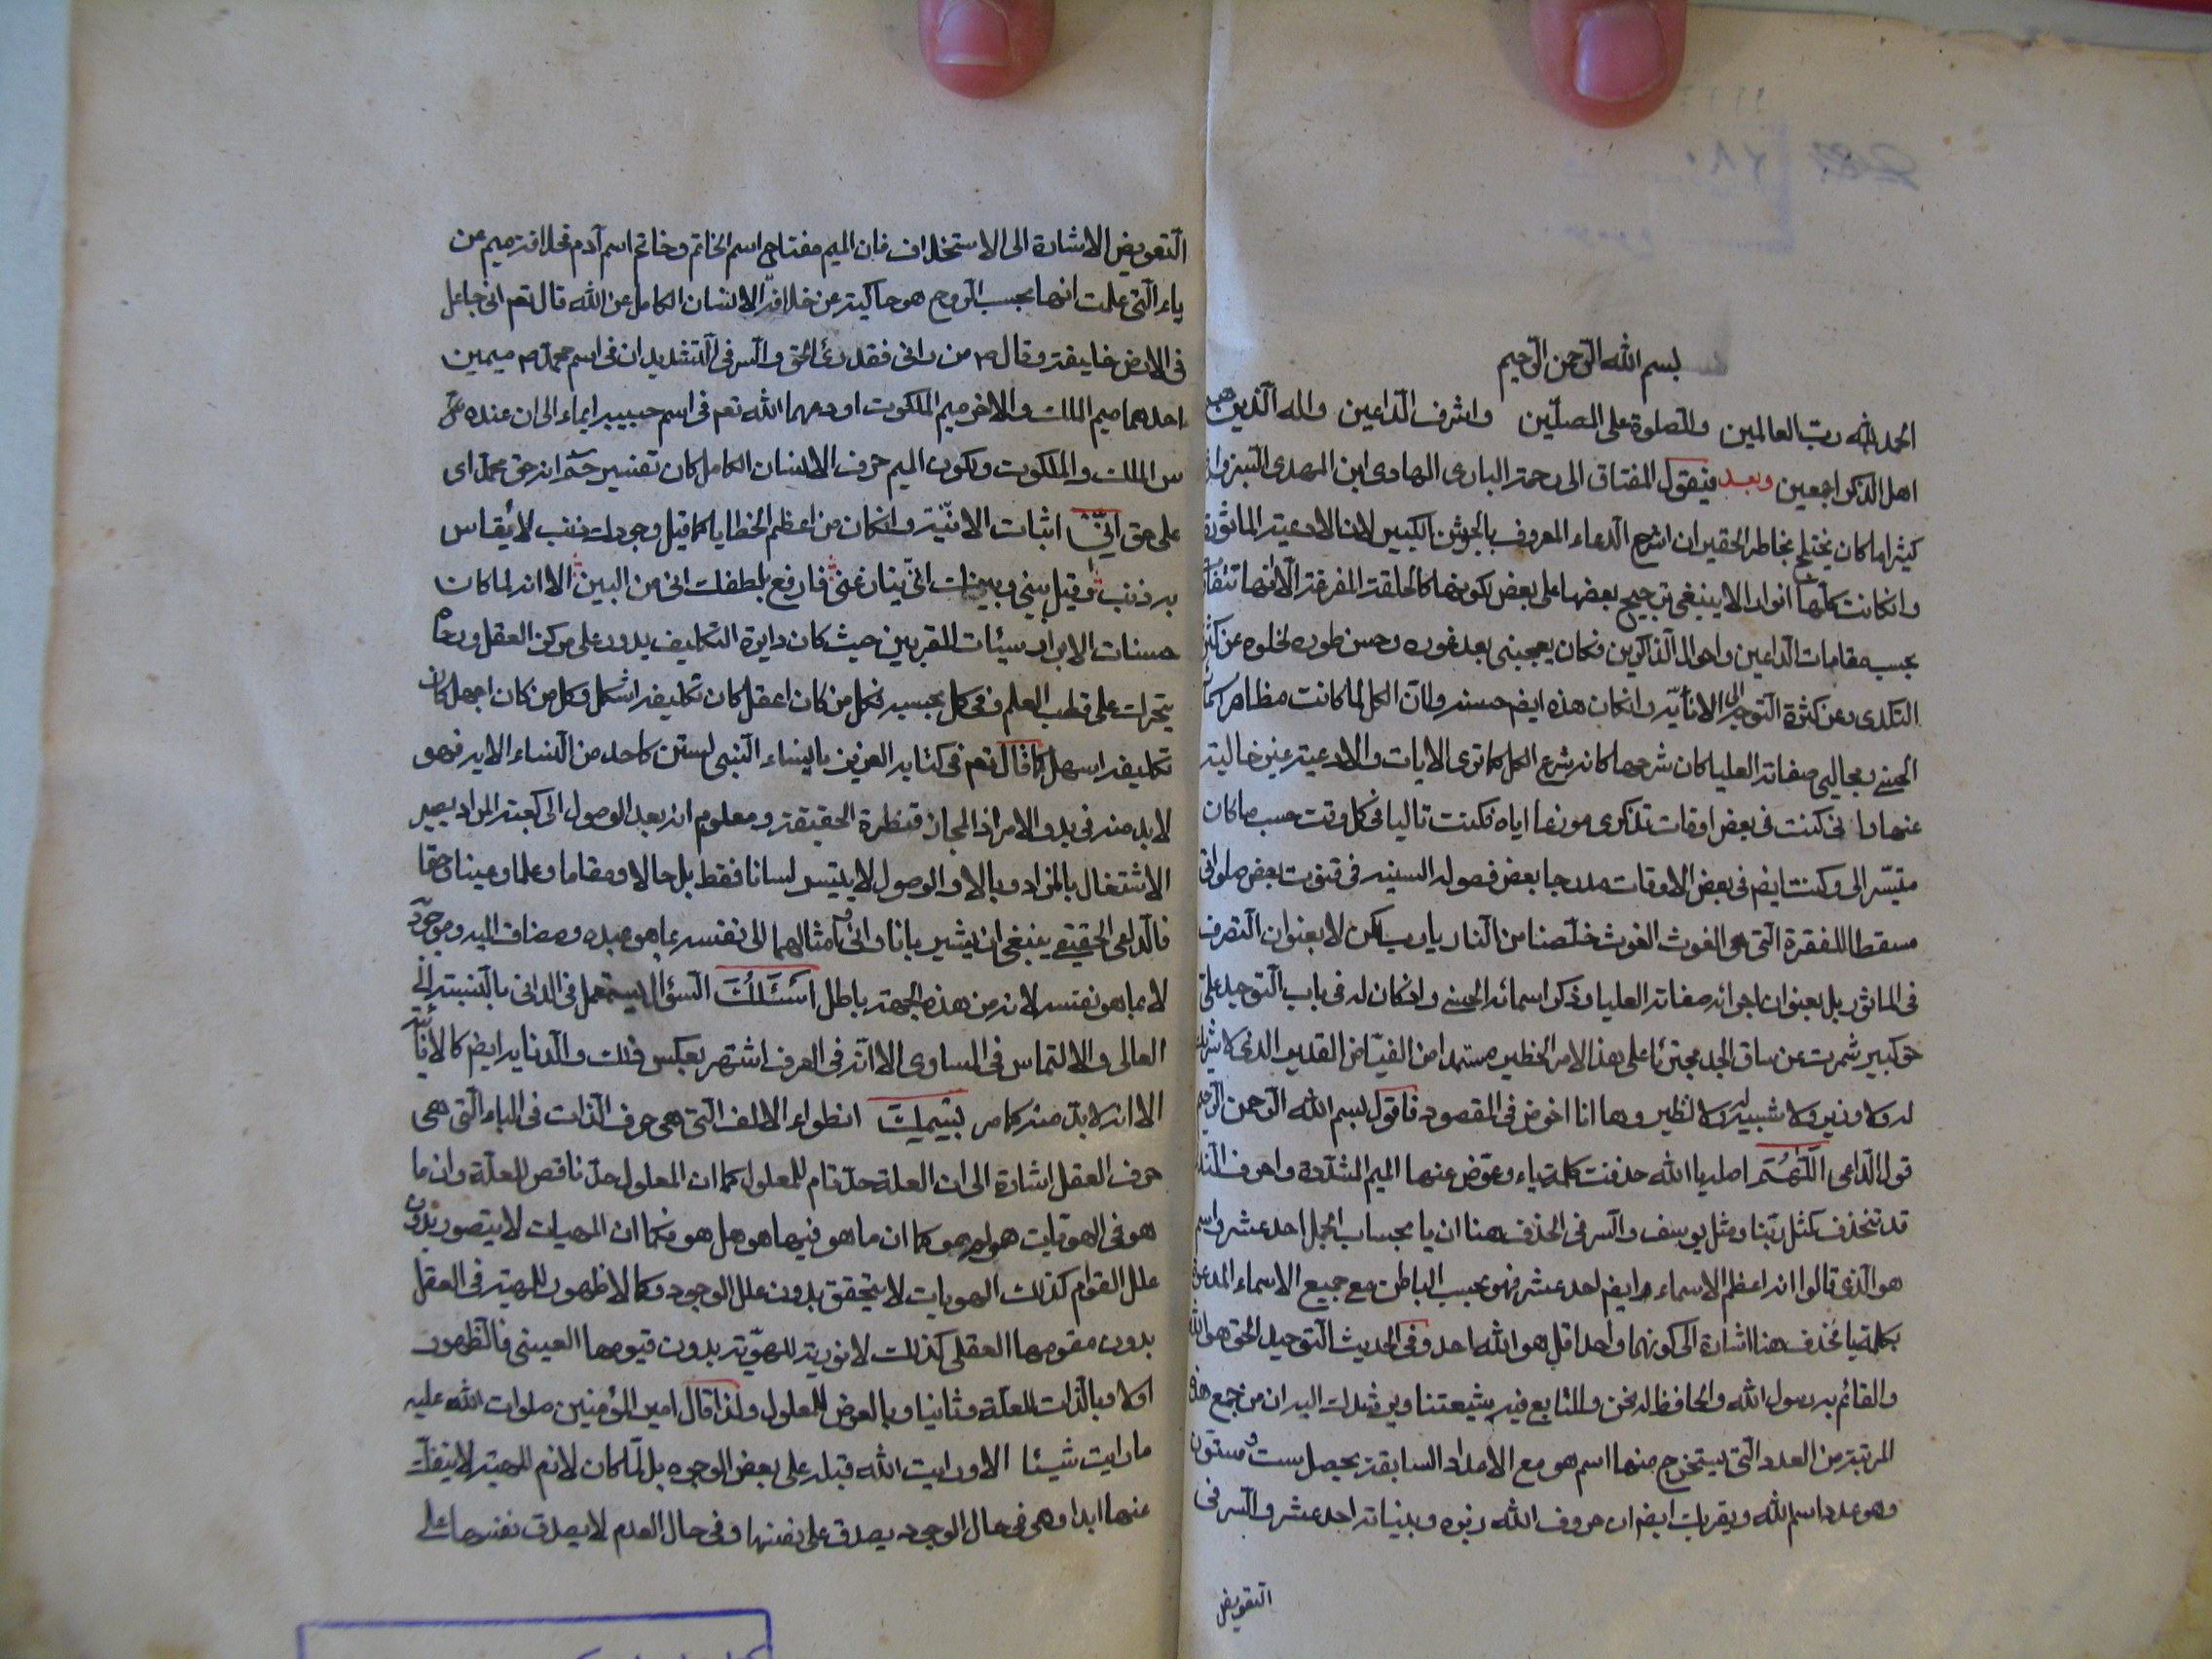 بسم الله الرحمن الرحيم
الحمد لله رب العالمين والصلوة على المصلين واشرف الداعين واله الذين هم
اهل الذكر اجمعين وبعد فيقول المفتاق الى رحمة البارى الهادى ابن المهدى السبزوارى
كثيرا ما كان يختلج بخاطر الحقير ان اشرح الدعاء المعروف بالجوشن الكبير لان الادعية الماثورة
وانكانت كلها انوارا لا ينبغى ترجيح بعضها على بعض لكونها كالحلقة المفرغة الا انها تتفاوت
بحسب مقامات الداعين واحوال الذاكرين فكان يعجبنى بعد غوره وحسن طوره لخلوه عن كثرة
التكدى وعن كثرة التوجه الى الانائية وانكان هذه ايضا حسنة ولان الكل لما كانت مظاهر اسمائه
الحسنى ومجالى صفاته العليا كان شرحها كانه شرح الكل كما ترى الايات والادعية غير خالية
عنها وانى كنت فى بعض اوقات تذكرى موزعا اياه فكنت تاليا فى كل وقت حسب ما كان
متيسرا لى وكنت ايضا فى بعض الاوقات مدرجا بعض فصوله السنية فى قنوت بعض صلواتى
مسقطا للفقرة التى هى الغوث الغوث خلصنا من النار يا رب لكن لا بعنوان التصرف
فى الماثور بل بعنوان اجرائه صفاته العليا وذكر اسمائه الحسنى واذ كان له فى باب التوحيد على
حق كبير شمرت عن ساق الجد مجترئا على هذا الامر الخطير مستمدا من الفياض القدير الذى لا شريك
له ولا وزير ولا شبيه له ولا نظير وها انا اخوض فى المقصود فاقول بسم الله الرحمن الرحيم
قول الداعى اللهم اصله يا الله حذفت كلمة ياء وعوض عنها الميم المشددة وحروف النداء
قد تحذف كمثل ربنا ومثل يوسف والسر فى الحذف هنا ان يا بحساب الجمل احد عشر واسم
هو الذى قالوا انه اعظم الاسماء ايضا احد عشر فهو بحسب الباطن مع جميع الاسماء المدعوة
بكلمة يا فحذف هنا اشارة الى كونهما واحدا قل هو الله احد وفى الحديث التوحيد الحق هو الله
والقائم به رسول الله والحافظ له نحن والتابع فيه شيعتنا ويرشدك اليه ان من جمع هذه
المرتبة من العدد التى يستخرج منها اسم هو مع الاعداد السابقة يحصل ست وستون
وهو عدد اسم الله ويقربك ايضا ان حروف الله زبره وبيناته احد عشر والسر فى
التعويض
التعويض الاشارة الى الاستخلاف فان الميم مفتاح اسم الخاتم وخاتم اسم آدم فخلافة ميم عن
ياء التى علمت انها بحسب الروح هو حاكية عن خلافة الانسان الكامل عن الله قال تعم انى جاعل
فى الارض خليفة وقال ص من رانى فقد رئ الحق والسر فى التشديد ان فى اسم محمد ص ميمين
احدهما ميم الملك والاخر ميم الملكوت اودعهما الله تعم فى اسم حبيبه ايماء الى ان عنده
سر الملك والملكوت ولكون الميم حرف الانسان الكامل كان تفسير حم انه حق محمد اى
على حق انى اثبات الانية وانكان من اعظم الخطايا كما قيل وجودك ذنب لا يقاس
به ذنب وقيل بينى وبينك انى ينازعنى فارفع بلطفك انى من البين الا انه لما كان
حسنات الابرار سيئات المقربين حيث كان دايرة التكليف يدور على مركز العقل ورحاه
يتحرك على قطب العلم وفى كل بحسبه فكل من كان اعقل كان تكليفه اشكل وكل من كان اجهل كان
تكليفه اسهل كما قال تعم فى كتابه العزيز يا نساء النبى لستن كاحد من النساء الايه فهو
لا بد منه فى بدو الامر اذ المجاز قنطرة الحقيقة ومعلوم انه بعد الوصول الى كعبة المراد يصير
الاشتغال بالزاد وبالا والوصول لا يتيسر لسانا فقط بل حالا ومقاما وعلما وعينا وحقا
فالداعى الحقيقى ينبغى ان يشير بانا وانى وامثالهما الى نفسه بما هو عبده ومضاف اليه وموجود به
لا بما هو نفسه لانه من هذه الجهة باطل اسئلك السؤال يستعمل فى الدانى بالنسبة الى
العالى والالتماس فى المساوى الا انه فى العرف اشتهر بعكس ذلك والدنايه ايضا كالانائية
الا انه لا بد منه كما مر بسمك انطواء الالف التى هى حرف الذات فى الباء التى هى
حرف العقل اشارة الى ان العلة حد تام للمعلول كما ان المعلول حد ناقص للعلة وان ما
هو فى الهويات هو لم هو كما ان ما هو فيها هو هل هو فكما ان المهيات لا يتصور بدون
علل القوام كذلك الهويات لا يتحقق بدون علل الوجود وكما لا ظهور للمهية فى العقل
بدون مقومها العقلى كذلك لا نورية للهوية بدون قيومها العينى فالظهور
اولا وبالذات للعلة وثانيا وبالعرض للمعلول ولذا قال امير المؤمنين صلوات الله عليه
ما رايت شيئا الا ورايت الله قبله على بعض الوجوه بل لما كان لازم المهية لا ينفك
عنها ابدا وهى فى حال الوجود يصدق على نفسها وفى حال العدم لا يصدق نفسها على